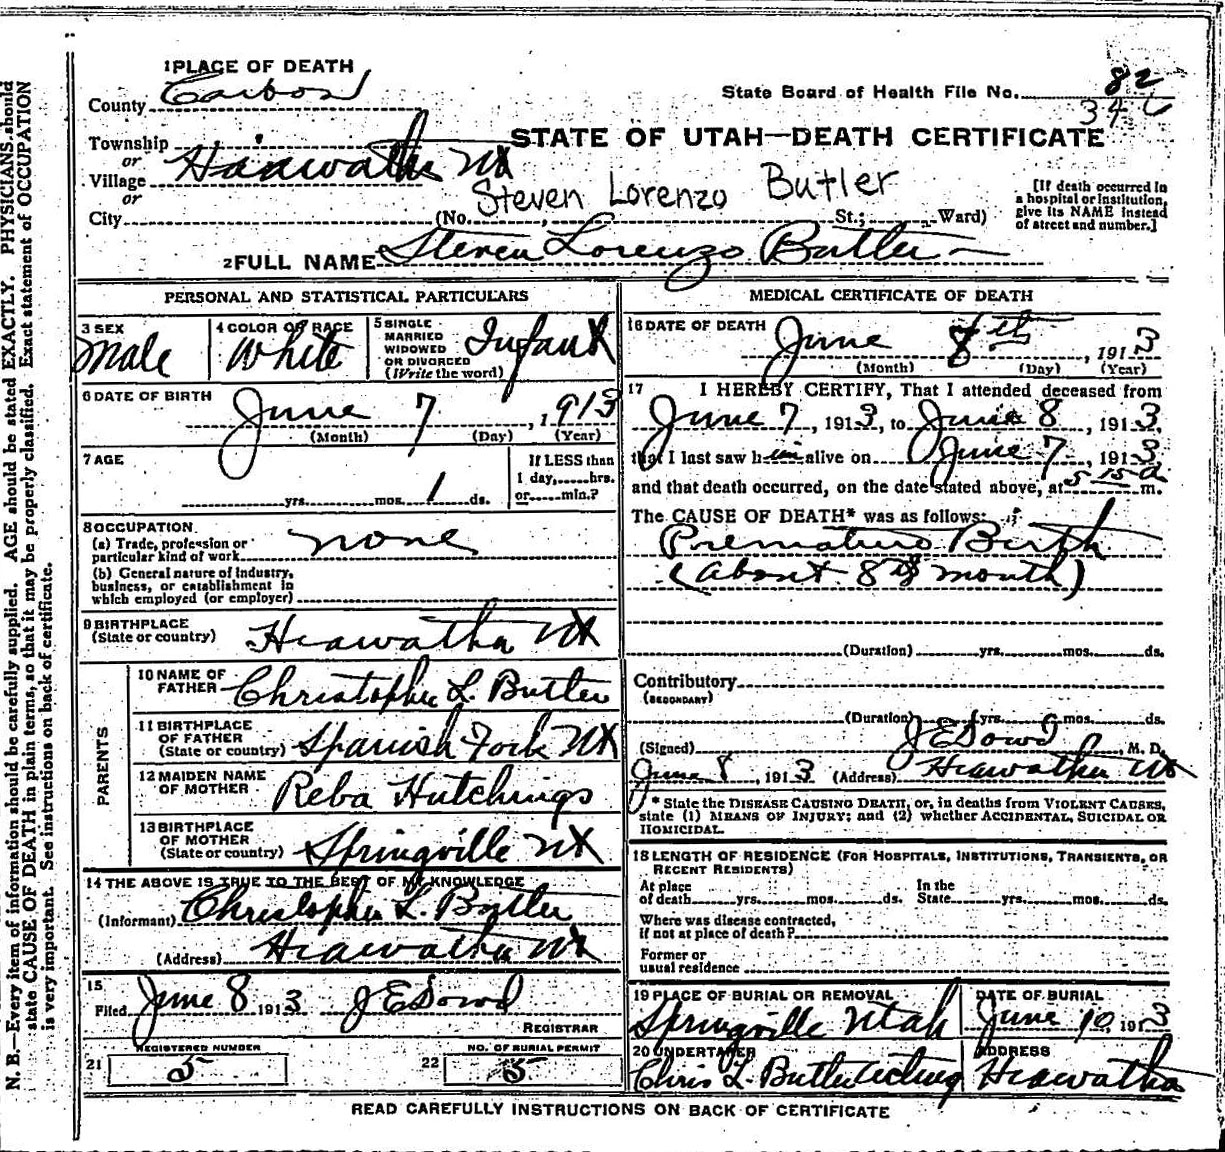 1 PLACE OF DEATH
County Carbon
State Board of Health File No. 82
34
Township
or
Village Hiawatha Ut
or
STATE OF UTAH—DEATH CERTIFICATE
Steven Lorenzo Butler
City (No. , St.; Ward)
[If death occurred in
a hospital or institution,
give its NAME instead
of street and number.]
2 FULL NAME Steven Lorenzo Butler
PERSONAL AND STATISTICAL PARTICULARS
3 SEX
Male
4 COLOR OR RACE
White
5 SINGLE
MARRIED
WIDOWED
OR DIVORCED
(Write the word)
Infant
6 DATE OF BIRTH
June 7, 1913
(Month) (Day) (Year)
7 AGE
yrs. mos. 1 ds.
If LESS than
1 day,......hrs.
or......min.?
8 OCCUPATION
(a) Trade, profession or
particular kind of work none
(b) General nature of industry,
business, or establishment in
which employed (or employer)
9 BIRTHPLACE
(State or country) Hiawatha Ut
PARENTS
10 NAME OF
FATHER Christopher L. Butler
11 BIRTHPLACE
OF FATHER
(State or country) Spanish Fork Ut
12 MAIDEN NAME
OF MOTHER Reba Hutchings
13 BIRTHPLACE
OF MOTHER
(State or country) Springville Ut
14 THE ABOVE IS TRUE TO THE BEST OF MY KNOWLEDGE
(Informant) Christopher L. Butler
(Address) Hiawatha Ut
15
Filed June 8 1913 J E Dowd
REGISTRAR
REGISTERED NUMBER
21 5
NO. OF BURIAL PERMIT
22 5
MEDICAL CERTIFICATE OF DEATH
16 DATE OF DEATH
June 8th, 1913
(Month) (Day) (Year)
17 I HEREBY CERTIFY, That I attended deceased from
June 7, 1913, to June 8, 1913,
that I last saw him alive on June 7, 1913
and that death occurred, on the date stated above, at 5 15 a m.
The CAUSE OF DEATH* was as follows:
Premature Birth
(about 8th month)
(Duration) yrs. mos. ds.
Contributory
(SECONDARY)
(Duration) yrs. mos. ds.
(Signed) J E Dowd, M. D.
June 8, 1913 (Address) Hiawatha Ut
* State the DISEASE CAUSING DEATH, or, in deaths from VIOLENT CAUSES,
state (1) MEANS OF INJURY; and (2) whether ACCIDENTAL, SUICIDAL OR
HOMICIDAL.
18 LENGTH OF RESIDENCE (FOR HOSPITALS, INSTITUTIONS, TRANSIENTS, OR
RECENT RESIDENTS)
At place
of death......yrs......mos......ds.
In the
State......yrs......mos......ds.
Where was disease contracted,
if not at place of death?
Former or
usual residence
19 PLACE OF BURIAL OR REMOVAL
Springville Utah
DATE OF BURIAL
June 10, 1913
20 UNDERTAKER
Chris L. Butler acting
ADDRESS
Hiawatha
READ CAREFULLY INSTRUCTIONS ON BACK OF CERTIFICATE
N. B.—Every item of information should be carefully supplied. AGE should be stated EXACTLY. PHYSICIANS should
state CAUSE OF DEATH in plain terms, so that it may be properly classified. Exact statement of OCCUPATION
is very important. See instructions on back of certificate.